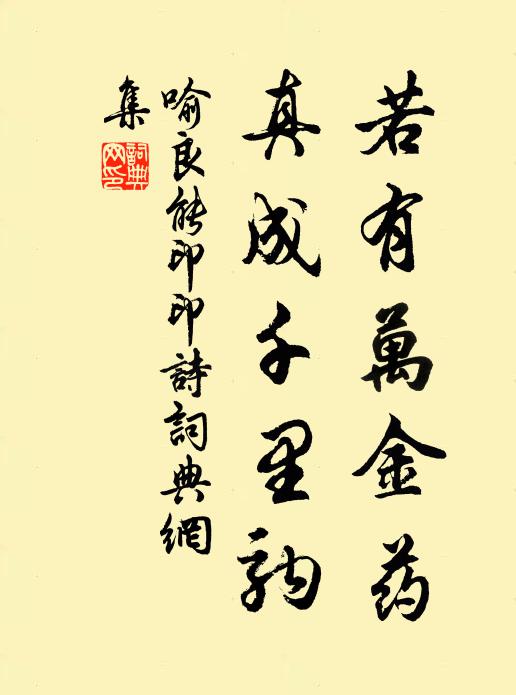 若有萬金药
真成千里駒
喻良能印印詩詞典網
集
詞典
网印